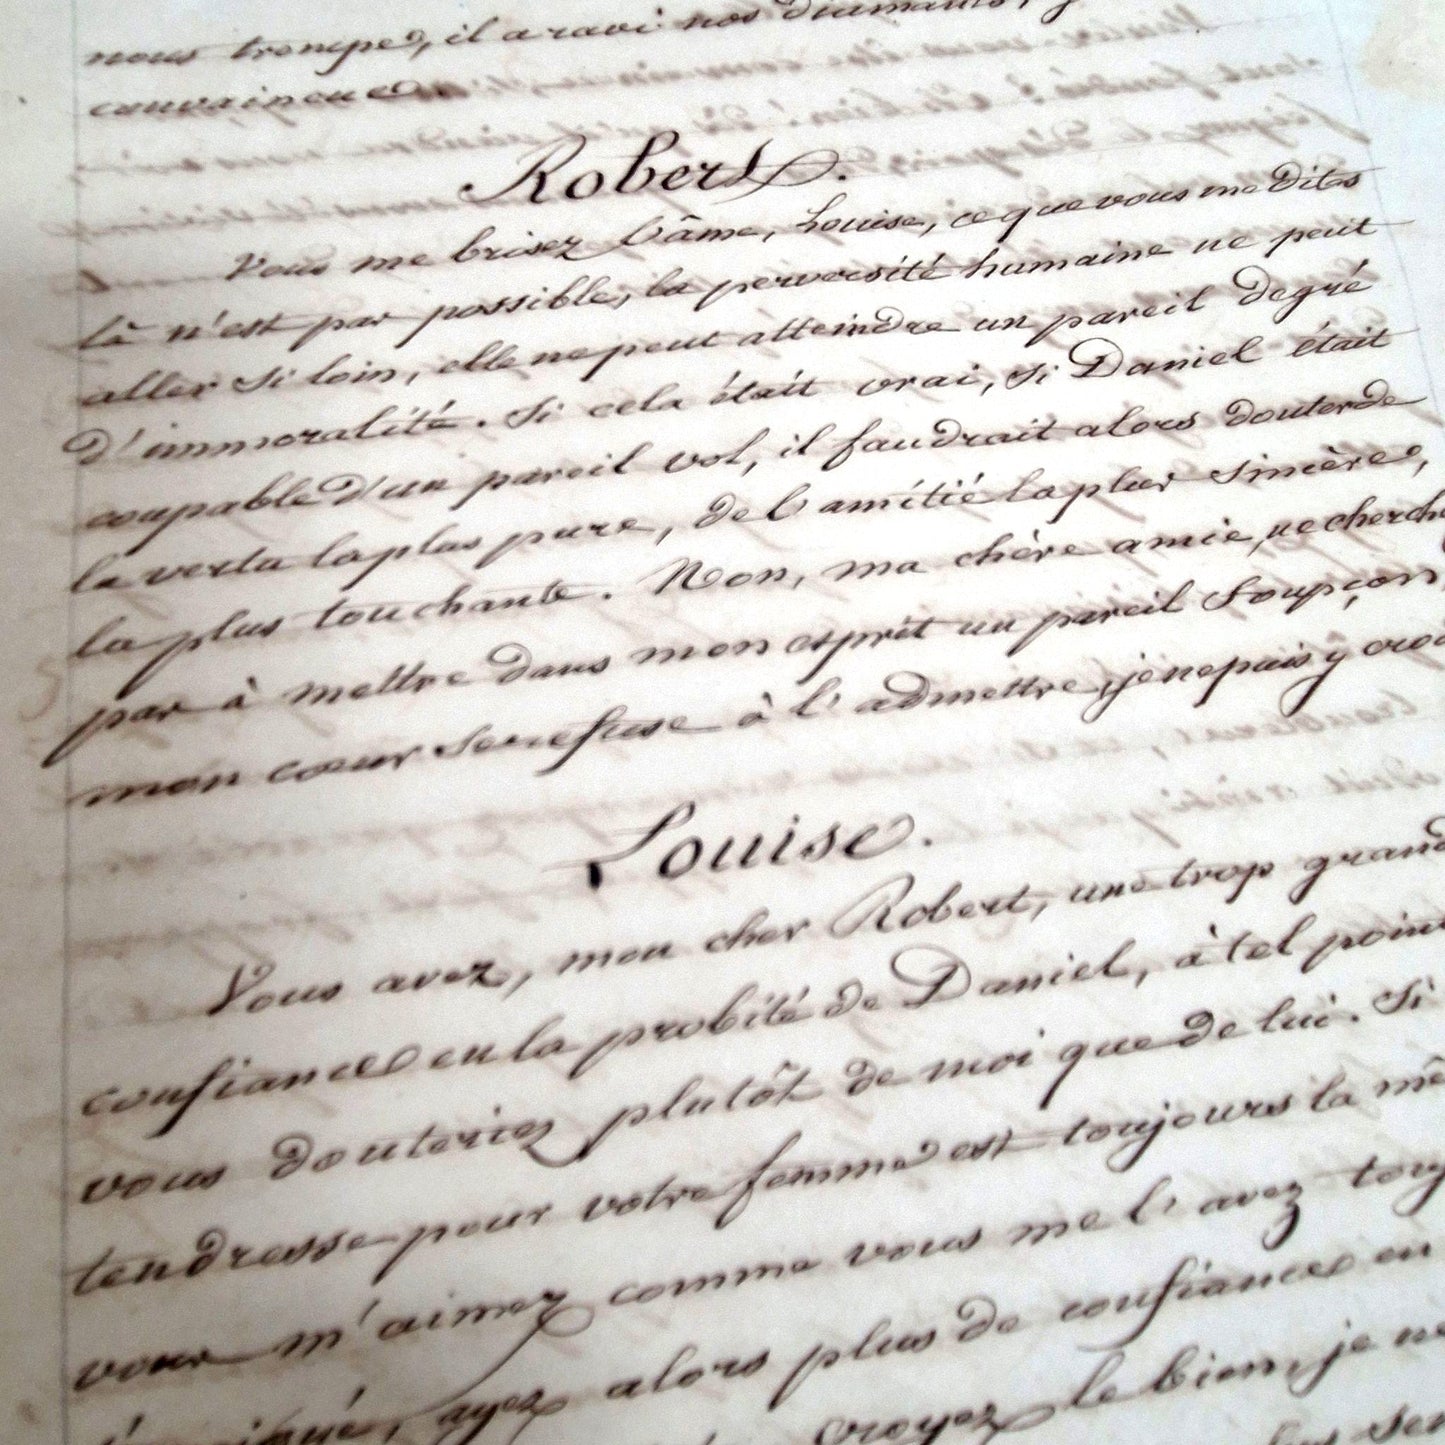 nous trompe, il a ravi nos diamants,
convaincue
Robert.
Vous me brisez l'âme, Louise, ce que vous me dites
là n'est pas possible, la perversité humaine ne peut
aller si loin, elle ne peut atteindre un pareil degré
d'immoralité. Si cela était vrai, si Daniel était
coupable d'un pareil vol, il faudrait alors douter de
la vertu la plus pure, de l'amitié la plus sincère,
la plus touchante. Non, ma chère amie, ne cherche
pas à mettre dans mon esprit un pareil soupçon,
mon cœur se refuse à l'admettre, je ne puis y croi
Louise.
Vous avez, mon cher Robert, une trop grand
confiance en la probité de Daniel, à tel point
vous douteriez plutôt de moi que de lui. Si
tendresse pour votre femme est toujours la mê
vous m'aimez comme vous me l'avez touj
ayez alors plus de confiance en
croyez le bien, je ne